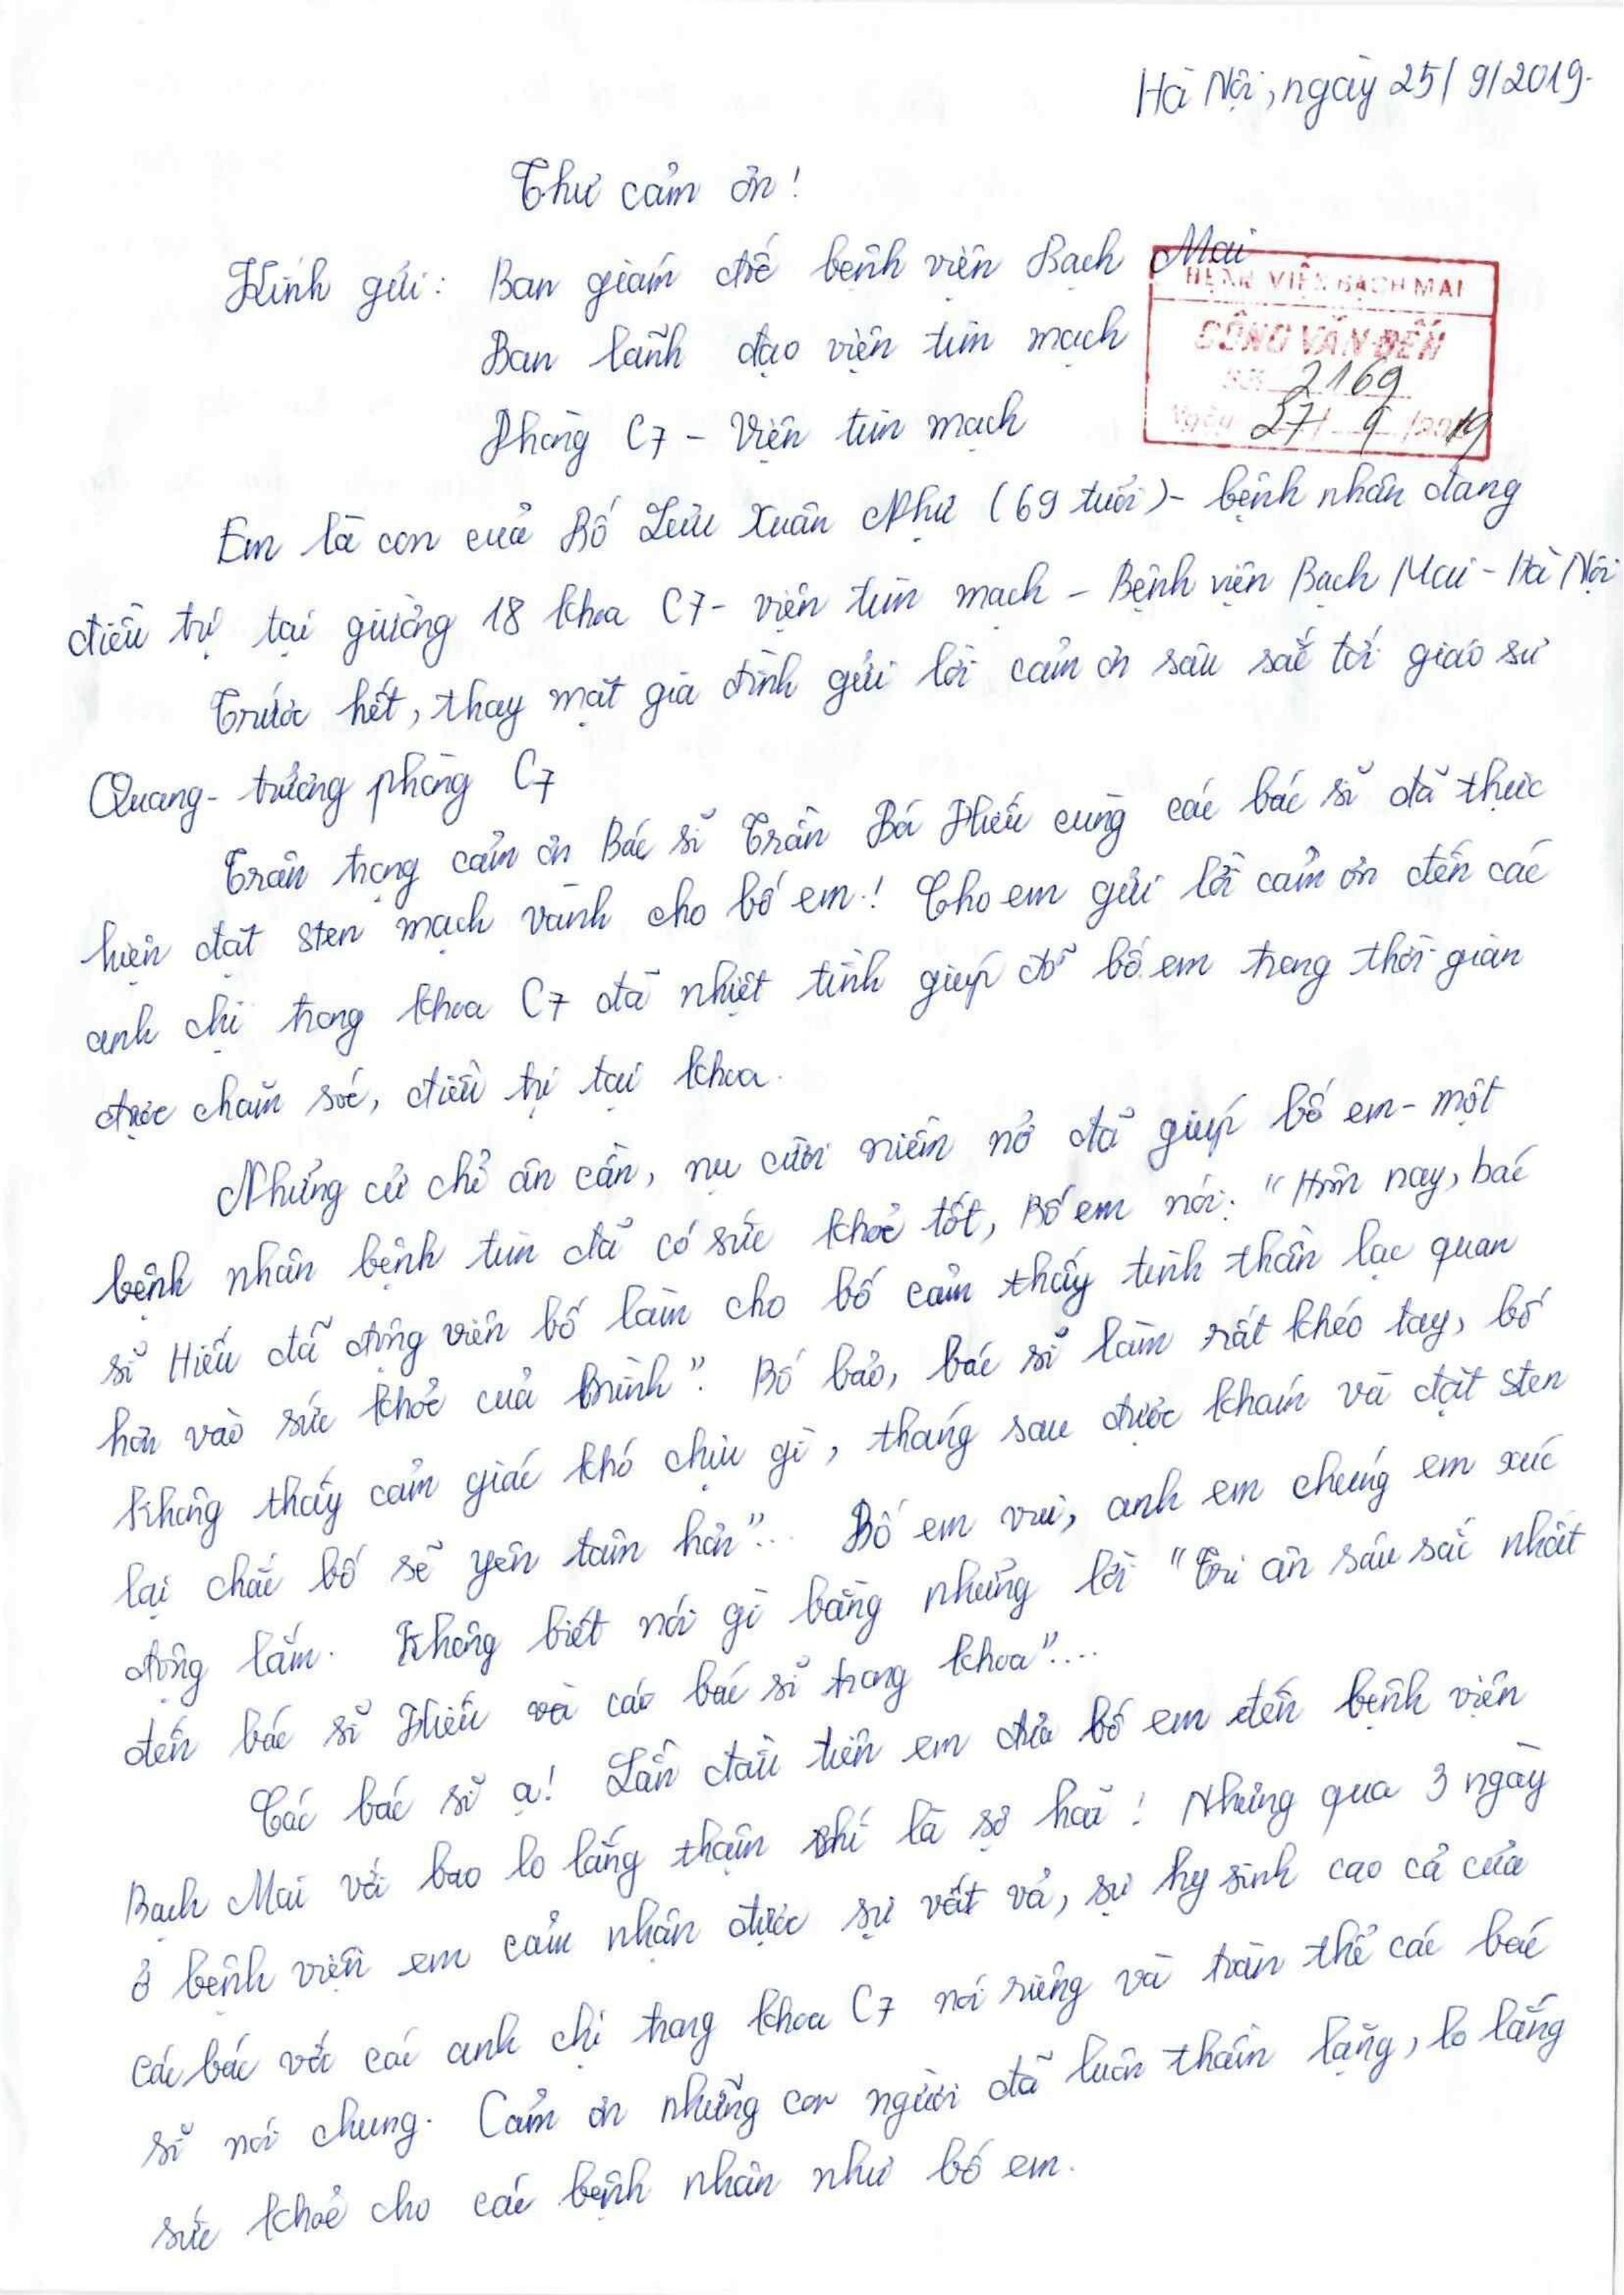 Hà Nội, ngày 25/9/2019.
Thư cảm ơn!
Kính gửi: Ban giám đốc bệnh viện Bạch Mai
BỆNH VIỆN BẠCH MAI
Ban lãnh đạo viện tim mạch
CÔNG VĂN ĐẾN
Số: 2169
Phòng C7 - Viện tim mạch
Ngày 27/ 9 /2019
Em là con của Bố Lưu Xuân Như (69 tuổi) - bệnh nhân đang
điều trị tại giường 18 khoa C7 - viện tim mạch - Bệnh viện Bạch Mai - Hà Nội
Trước hết, thay mặt gia đình gửi lời cảm ơn sâu sắc tới giáo sư
Quang - trưởng phòng C7
Trân trọng cảm ơn Bác sĩ Trần Bá Hiếu cùng các bác sĩ đã thực
hiện đặt sten mạch vành cho bố em! Cho em gửi lời cảm ơn đến các
anh chị trong khoa C7 đã nhiệt tình giúp đỡ bố em trong thời gian
được chăm sóc, điều trị tại khoa.
Những cử chỉ ân cần, nụ cười niềm nở đã giúp bố em - một
bệnh nhân bệnh tim đã có sức khoẻ tốt, Bố em nói: "Hôm nay, bác
sĩ Hiếu đã động viên bố làm cho bố cảm thấy tinh thần lạc quan
hơn vào sức khoẻ của mình". Bố bảo, bác sĩ làm rất khéo tay, bố
không thấy cảm giác khó chịu gì, tháng sau được khám và đặt sten
lại chắc bố sẽ yên tâm hơn"... Bố em vui, anh em chúng em xúc
động lắm. Không biết nói gì bằng những lời "Tri ân sâu sắc nhất
đến bác sĩ Hiếu và các bác sĩ trong khoa"....
Các bác sĩ ạ! Lần đầu tiên em đưa bố em đến bệnh viện
Bạch Mai với bao lo lắng thậm chí là sợ hãi! Nhưng qua 3 ngày
ở bệnh viện em cảm nhận được sự vất vả, sự hy sinh cao cả của
các bác với các anh chị trong khoa C7 nói riêng và toàn thể các bác
sĩ nói chung. Cảm ơn những con người đã luôn thầm lặng, lo lắng
sức khoẻ cho các bệnh nhân như bố em.